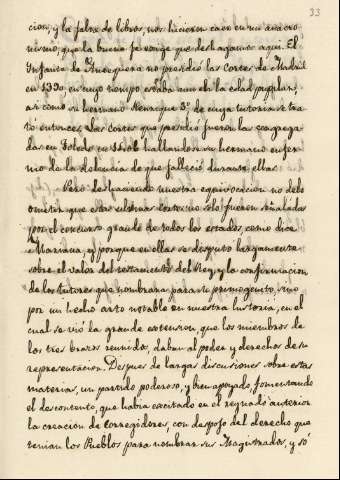 33
cion, y la falta de libros, nos hicieron caer en un anacro
nismo, que la buena fe exige que deshagamos aqui. El
Infante de Antequera no presidió las Cortes de Madrid
en 1390 en cuyo tiempo estaba aun en la edad pupilar,
asi como su hermano Henrique 3º de cuya tutoria se tra
tó entonces. Las Cortes que presidió fueron las congrega
das en Toledo en 1406 hallandose su hermano enfer
mo de la dolencia de que falleció durante ellas.
Pero deshaciendo nuestra equivocacion no debo
omitir que estas ultimas Cortes no solo fueron señaladas
por el concurso grande de todos los estados, como dice
Mariana, y porque en ellas se disputó largamente
sobre el valor del testamento del Rey, y la confirmacion
de los tutores que nombrara para su primogenito, sino
por un hecho arto notable en nuestra historia, en el
cual se vió la grande estension, que los miembros de
los tres brazos reunidos, daban al poder y derechos de su
representacion. Despues de largas discusiones sobre estas
materias, un partido poderoso, y bien apoyado, fomentando
el descontento, que habia excitado en el reynado anterior
la creacion de Corregidores, con despojo del derecho que
tenian los Pueblos para nombrar sus Magistrados, y só